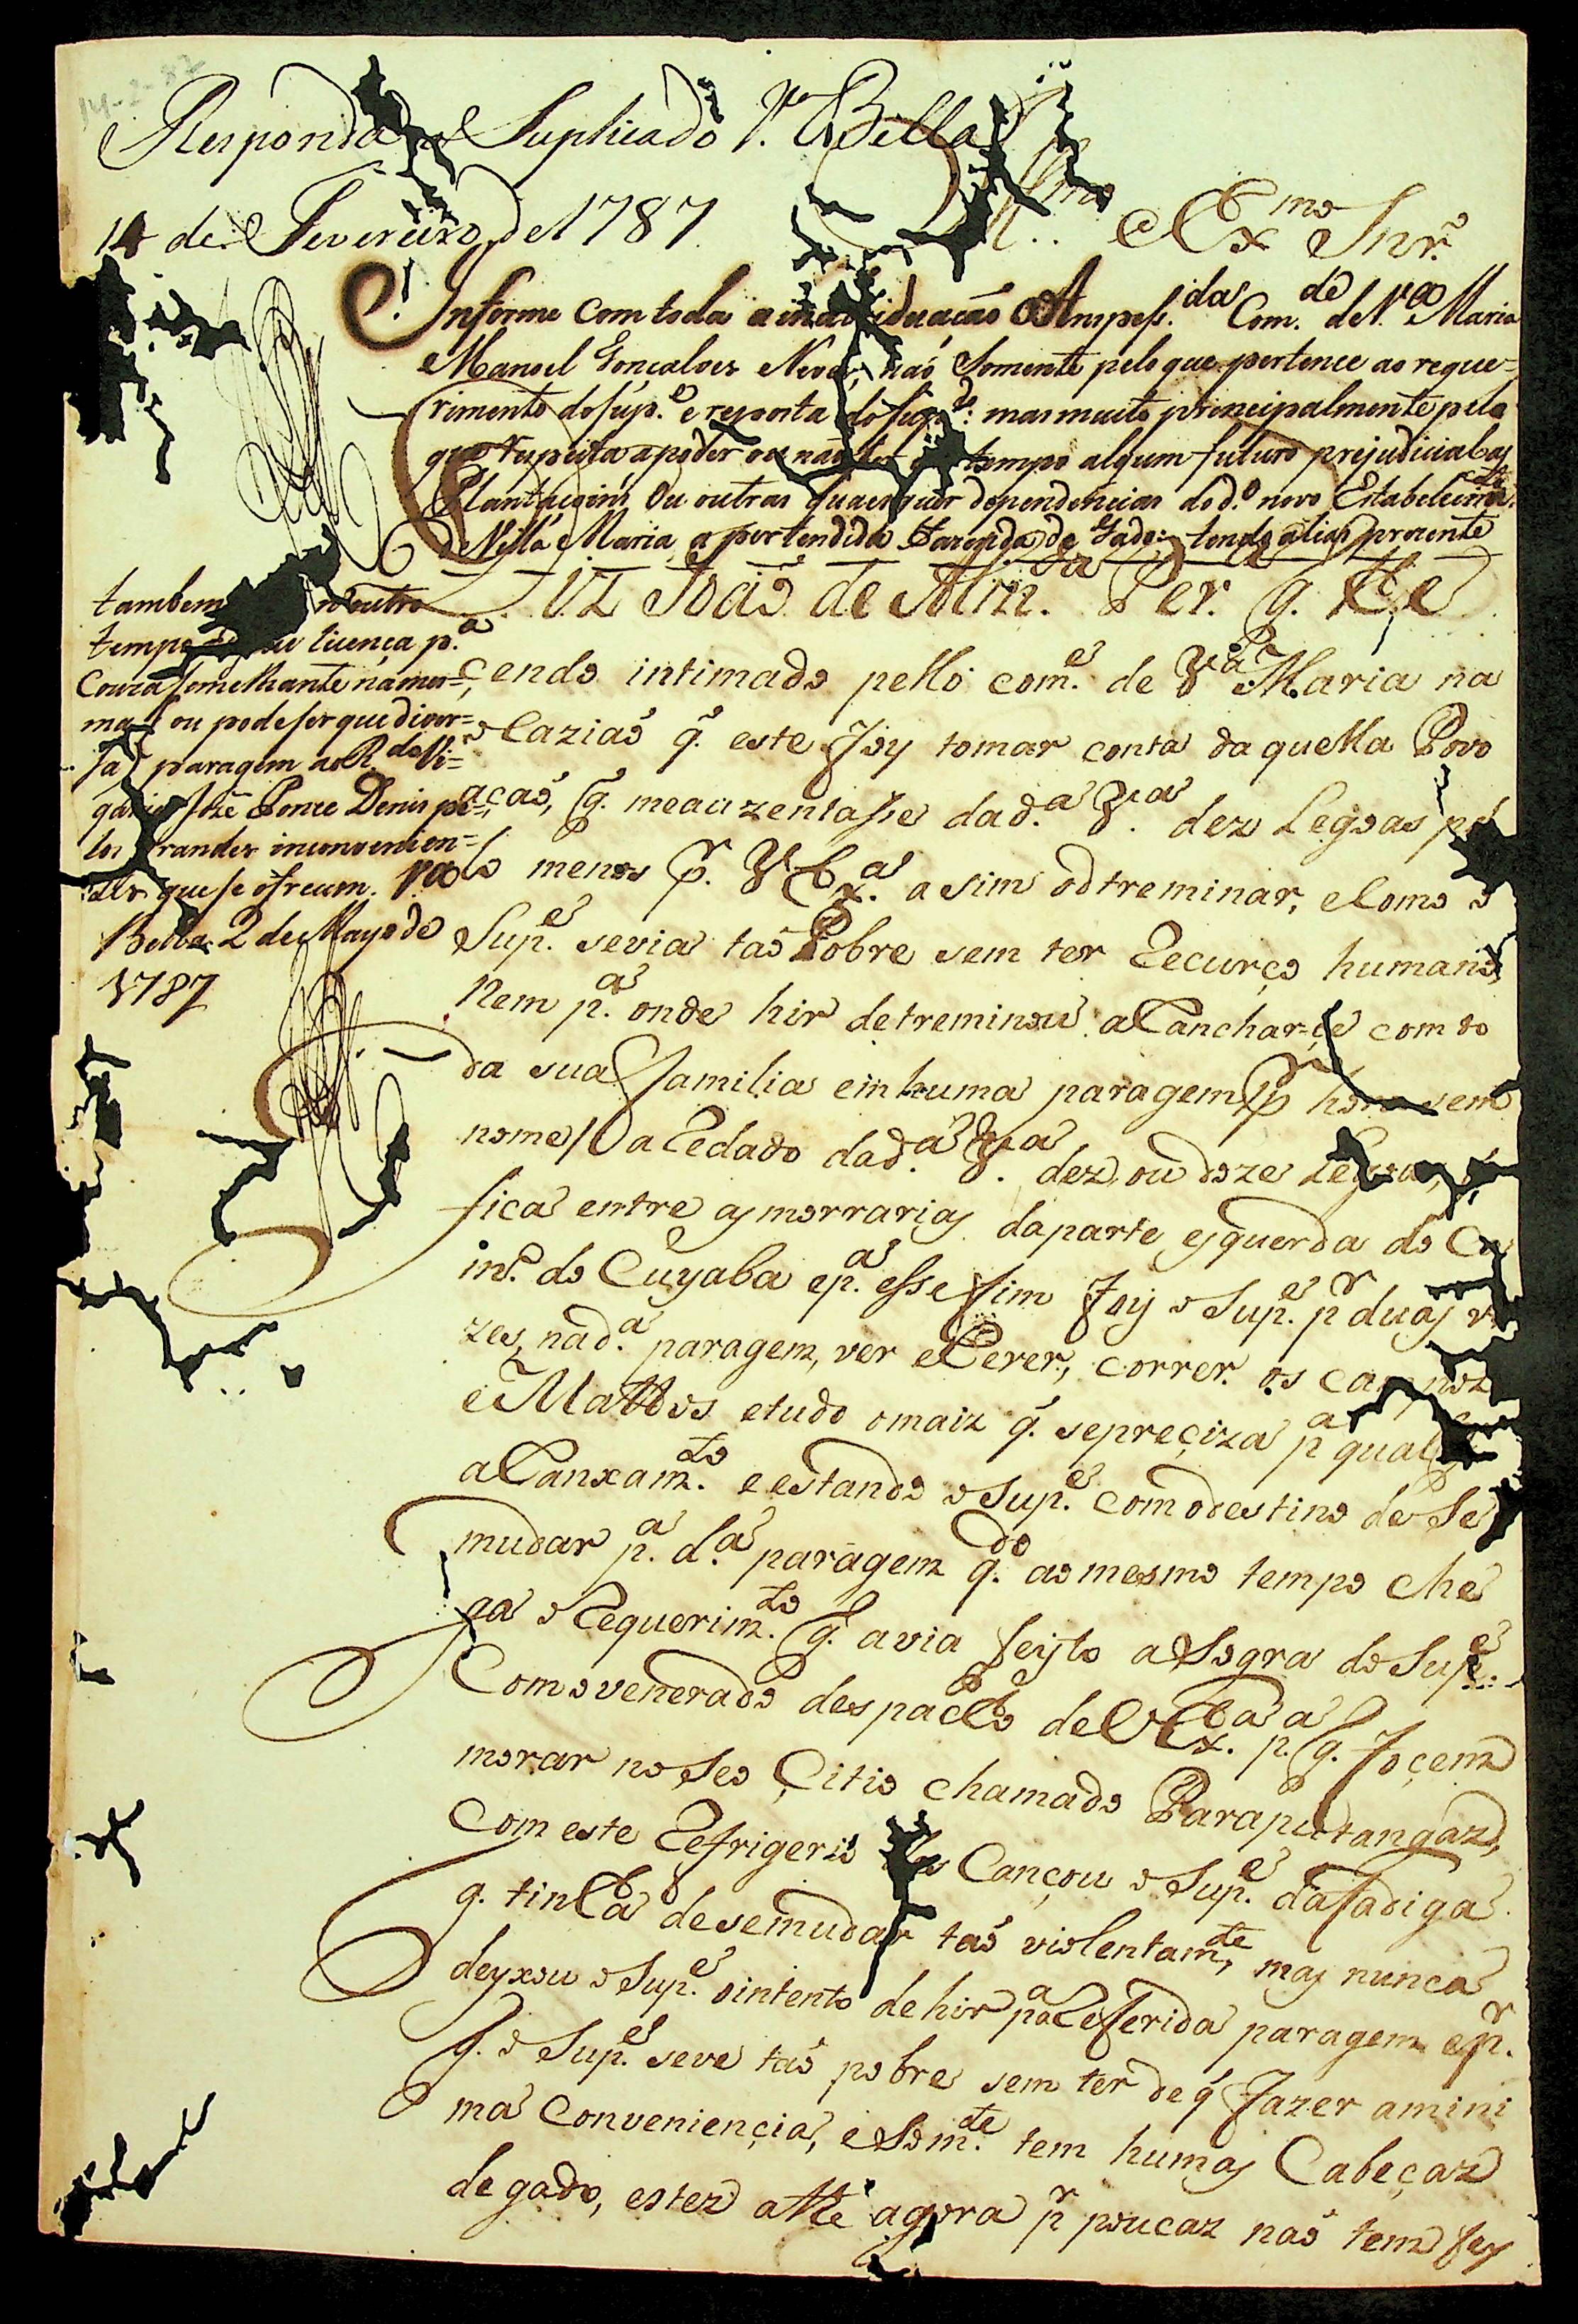 14-2-87
Responda o Suplicado V.ª Bella
14 de Fevereiro de 1787
Ill.mo e Ex.mo Snr.
Informe com toda a individuação o Am.pess.da Com.de de V.ª Maria
Manoel Gonçalves Neves, não Somente pelo que pertence ao reque=
rimento do Sup.e e reposta do Sup.do: mas muito principalmente pelo
que respeita a poder ou não ser em tempo algum futuro prejudicial as
Plantaçoins Ou outras quaesquer dependencias do d.º novo Estabelecim.to
de Villa Maria a pertendida Fazenda de Gado: tendo aliás prezente
também outro
tempo licença p.ª
Couza Semelhante na mes=
ma, ou pode ser que diver=
sa paragem ao R.do Vi=
gario José Ponce Denis pe=
los grandes inconvenien=
tes que se ofrecem. V.ª
Bella 2 de Mayo de
1787
Diz João de Alm.da Per.ª q.
cendo intimado pello com.e de V.ª Maria na
o Cazião q. este foy tomar conta da quella Povo
ação, q. me auzentasse da d.ª V.ª dez Legoas pe
lo menos p.r V Ex.ª a sim o dtreminar, e Como o
Sup.e se via tão Pobre sem ter Recurço humano,
nem p.ª onde hir detreminou a Ranchar-çe com to
da sua familia em huma paragem p.r hora sem
nome a Redado da d.ª V.ª dez, ou doze Legoas,
fica entre as morrarias da parte esquerda do Ca
in.º do Cuyaba e p.ª esse fim foy o Sup.e p.r duas ve
zes, na d.ª paragem, ver e Rever, correr os campoz
e Mattos e tudo o maiz q. se preçiza p.ª qual
a Ranxam.to e estando o Sup.e com o destino de Se
mudar p.ª d.ª paragem q.do ao mesmo tempo che
ga o Requerim.to q. avia feyto a Sogra do Sup.e
Com o venerado despacho de V Ex.ª p.ª q. foçem
morar no Seo Çitio chamado Paraputangaz,
Com este Refrigerio Cançou o Sup.e da fadiga
q. tinha de se mudar tão violentam.te, mas nunca
deyxou o Sup.e o intento de hir p.ª a Referida paragem e p.r
q. o Sup.e se ve tão pobre sem ter de q fazer a mini
ma Conveniençia, e Som.te tem humas Cabeçaz
de gado, estez athe agora p.r poucaz não tem fey